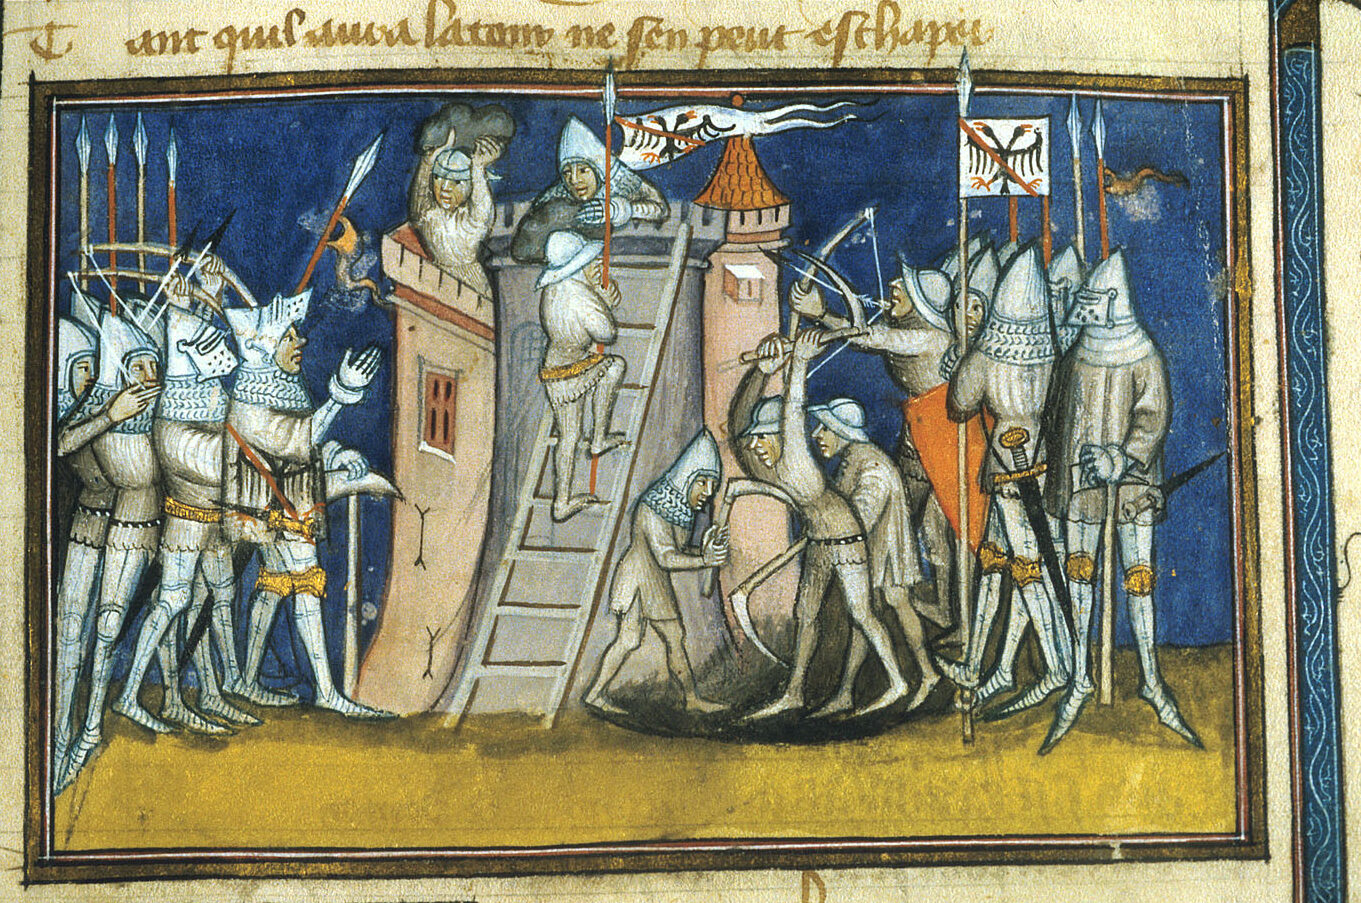 Tant quil aura la tour ne sen peut eschaper